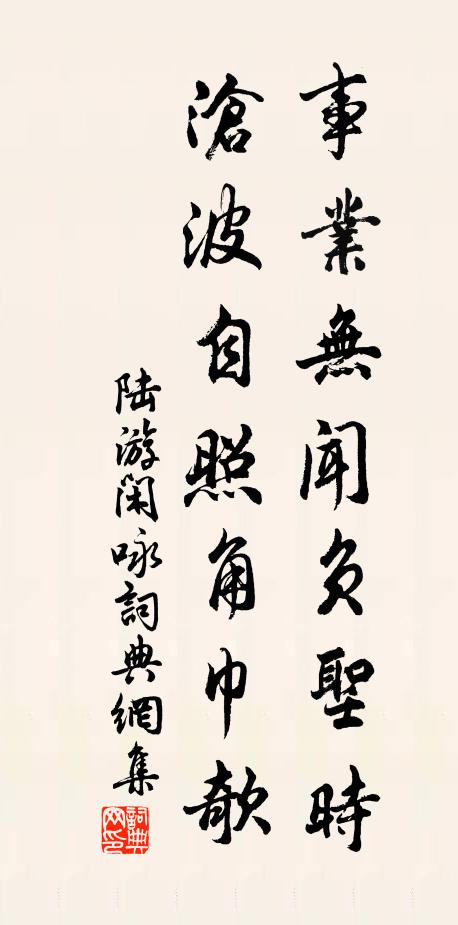 事業無聞負聖時
滄波自照角巾欹
陆游閑咏詞典網集
詞典網印